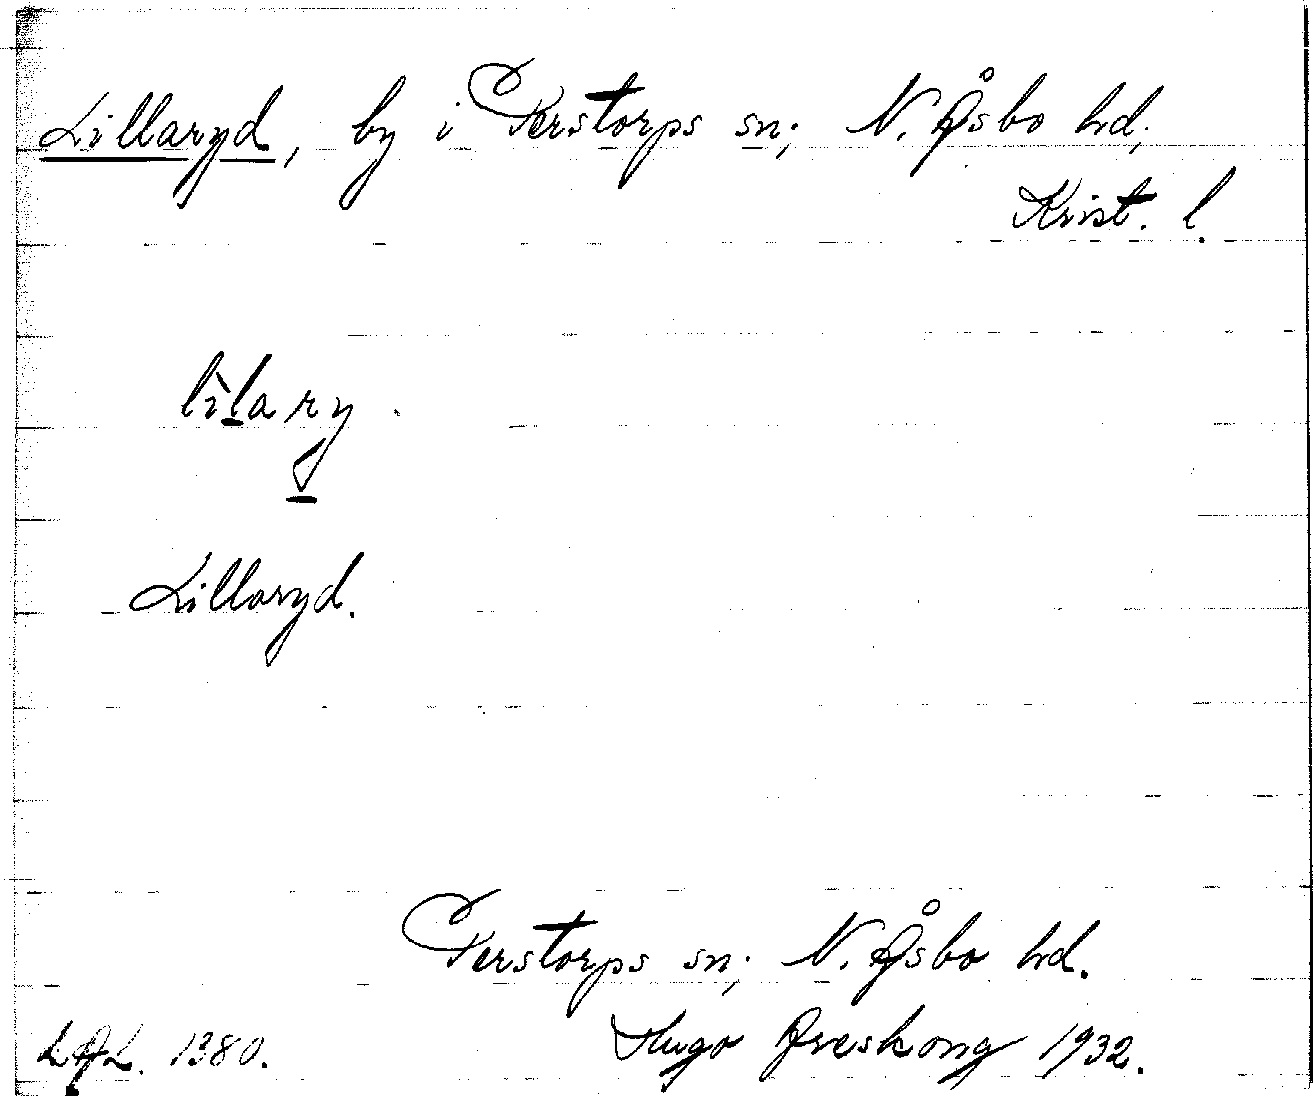 Lillaryd, by i Perstorps sn; N. Åsbo hd;
Krist. l.
lìlary.
Lillaryd.
Perstorps sn; N. Åsbo hd.
LAL. 1380. Hugo Areskoug 1932.